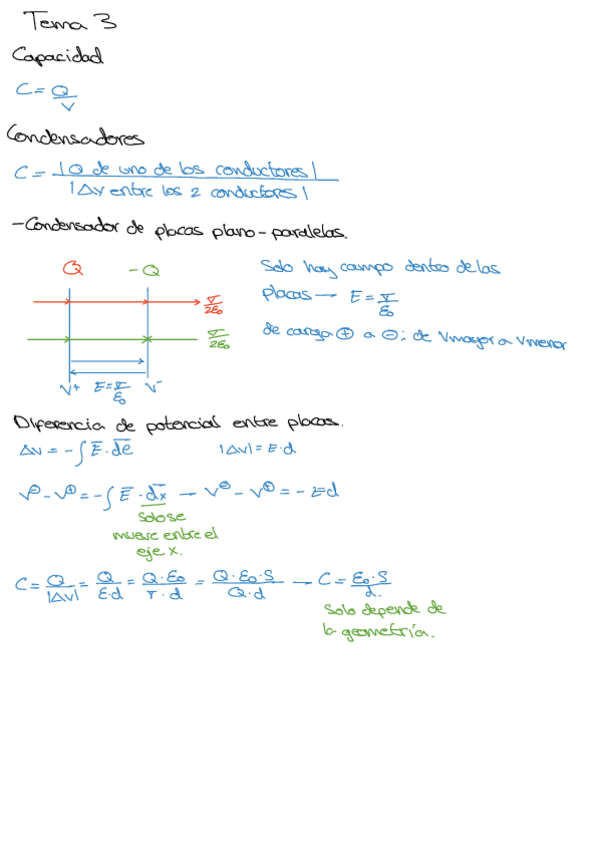 Tema 3
Capacidad
C = Q/V
Condensadores
C = |Q de uno de los conductores| / |ΔV entre los 2 conductores|
- Condensador de placas plano-paralelas.
Q - Q
σ/2ε₀
σ/2ε₀
V+ E = σ/ε₀ V-
Solo hay campo dentro de las
placas — E = σ/ε₀
de carga ⊕ a ⊖; de Vmayor a Vmenor
Diferencia de potencial entre placas.
ΔV = -∫E̅·de̅ |ΔV| = E·d
V⊖ - V⊕ = -∫E̅·dx̅ — V⊖ - V⊕ = - Ed
Solo se
mueve entre el
eje x.
C = Q/|ΔV| = Q/E·d = Q·ε₀/σ·d = Q·ε₀·S/Q·d — C = ε₀·S/d.
Solo depende de
la geometría.